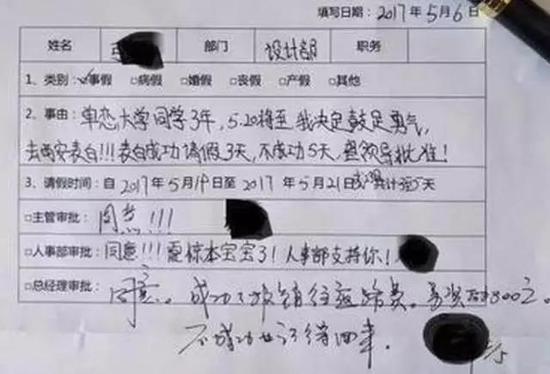 填写日期：2017年5月6日
姓名 部门 设计部 职务
1、类别：☑事假 □病假 □婚假 □丧假 □产假 □其他
2、事由：单恋大学同学3年，5.20将至我决定鼓足勇气，
去西安表白!!!表白成功请假3天，不成功5天，望领导批准！
3、请假时间：自2017年5月19日至2017年5月21日 共计3或5天
□主管审批：同意!!!
□人事部审批：同意!!!震惊本宝宝了！人事部支持你！
□总经理审批：同意。成功了报销往返路费。
不成功也记得回来。